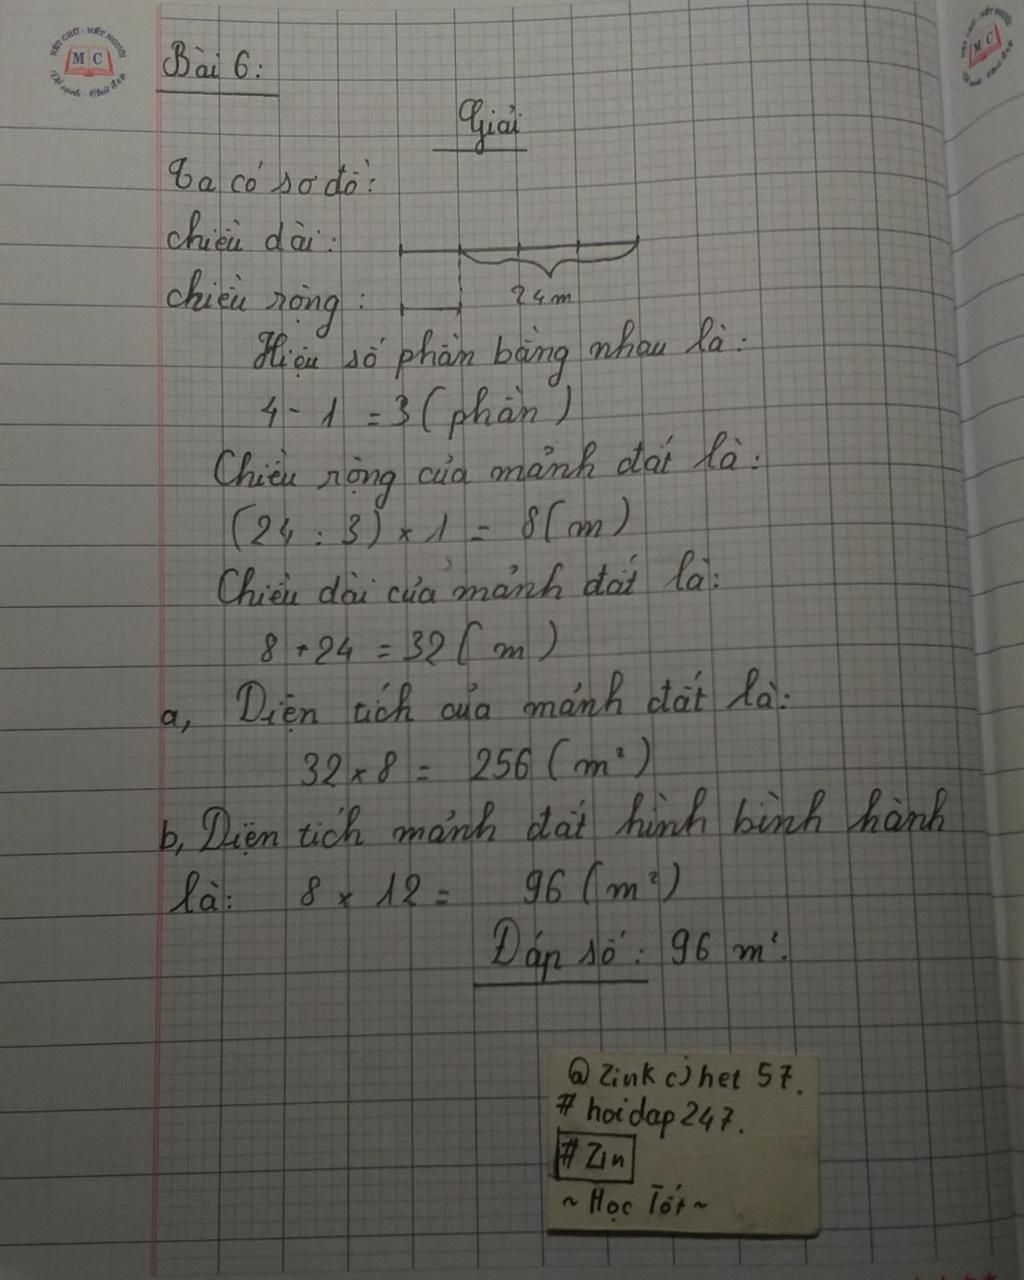 NÉT CHỮ - NẾT NGƯỜI
MC
Vở sạch - Chữ đẹp
Bài 6:
Giải
Ta có sơ đồ:
chiều dài:
chiều rộng:
24m
Hiệu số phần bằng nhau là:
4 - 1 = 3 (phần)
Chiều rộng của mảnh đất là:
(24 : 3) x 1 = 8 (m)
Chiều dài của mảnh đất là:
8 + 24 = 32 (m)
a, Diện tích của mảnh đất là:
32 x 8 = 256 (m²)
b, Diện tích mảnh đất hình bình hành
là: 8 x 12 = 96 (m²)
Đáp số: 96 m².
@ Zink c) het 57.
# hoidap 247.
# Zin
~ Học Tốt ~